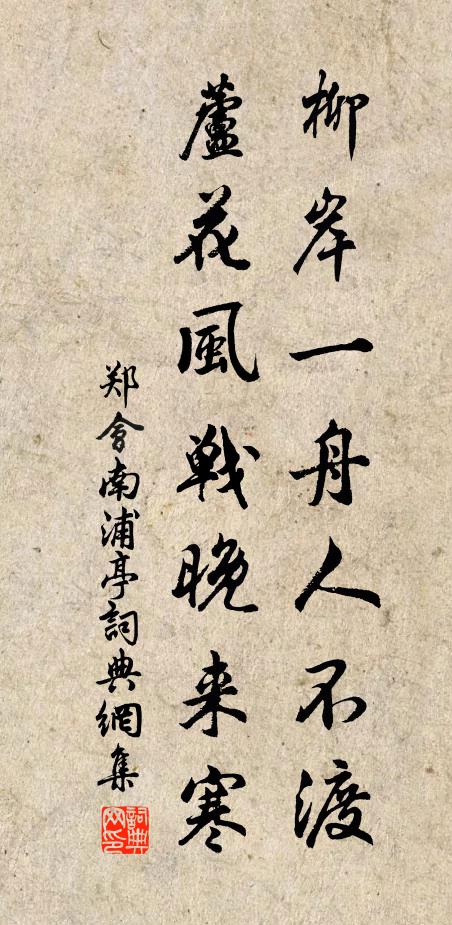 柳岸一舟人不渡
蘆花風戰晚来寒
郑會南浦亭詞典網集
詞典网印